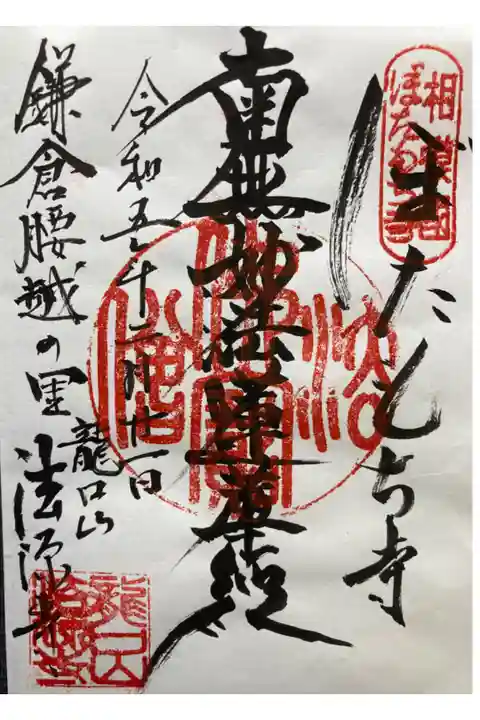 相模国
ぼたもち寺
ぼたもち寺
南無妙法蓮華経
令和五年十二月廿一日
龍口山
鎌倉腰越の里 法源寺